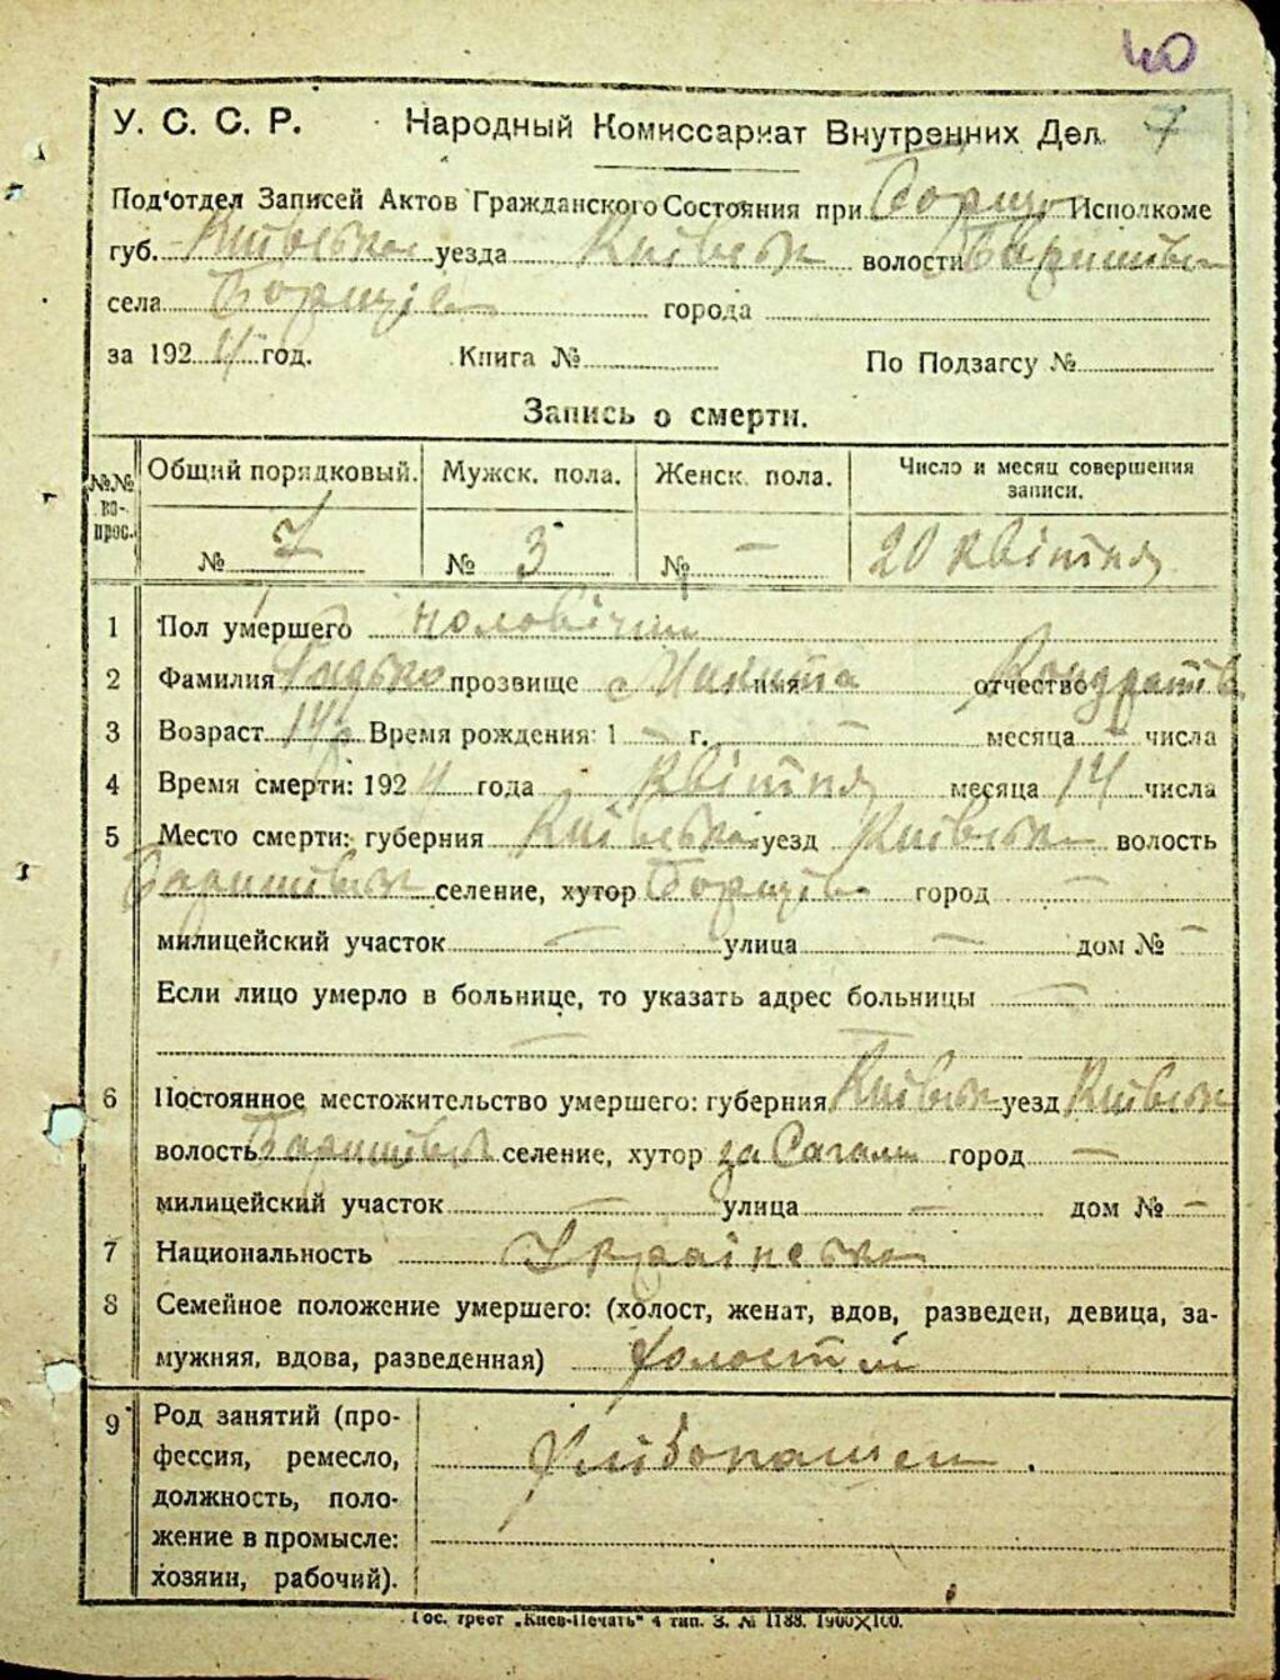 40
У. С. С. Р. Народный Комиссариат Внутренних Дел. 7
Под'отдел Записей Актов Гражданского Состояния при Исполкоме
губ. Київська уезда Київськ волости Баришівськ
села Борщів города
за 192 4 год. Книга № По Подзагсу №
Запись о смерти.
№№ вопрос. Общий порядковый. Мужск. пола. Женск. пола. Число и месяц совершения записи.
№ 7 № 3 № — 20 квітня
1 Пол умершего чоловічий
2 Фамилия прозвище Микита имя отчество Кондратів
3 Возраст 14 Время рождения: 1 — г. — месяца — числа
4 Время смерти: 192 4 года Квітня месяца 14 числа
5 Место смерти: губерния Київська уезд Київськ волость
Баришівськ селение, хутор Борщів город —
милицейский участок — улица — дом № —
Если лицо умерло в больнице, то указать адрес больницы —
—
6 Постоянное местожительство умершего: губерния Київськ уезд Київськ
волость Баришівськ селение, хутор город —
милицейский участок — улица — дом № —
7 Национальность Українська
8 Семейное положение умершего: (холост, женат, вдов, разведен, девица, за-
мужняя, вдова, разведенная) холостий
9 Род занятий (про-
фессия, ремесло, Хлібопашец.
должность, поло-
жение в промысле:
хозяин, рабочий).
Гос. трест „Киев-Печать" 4 тип. З. № 1188. 1900×100.